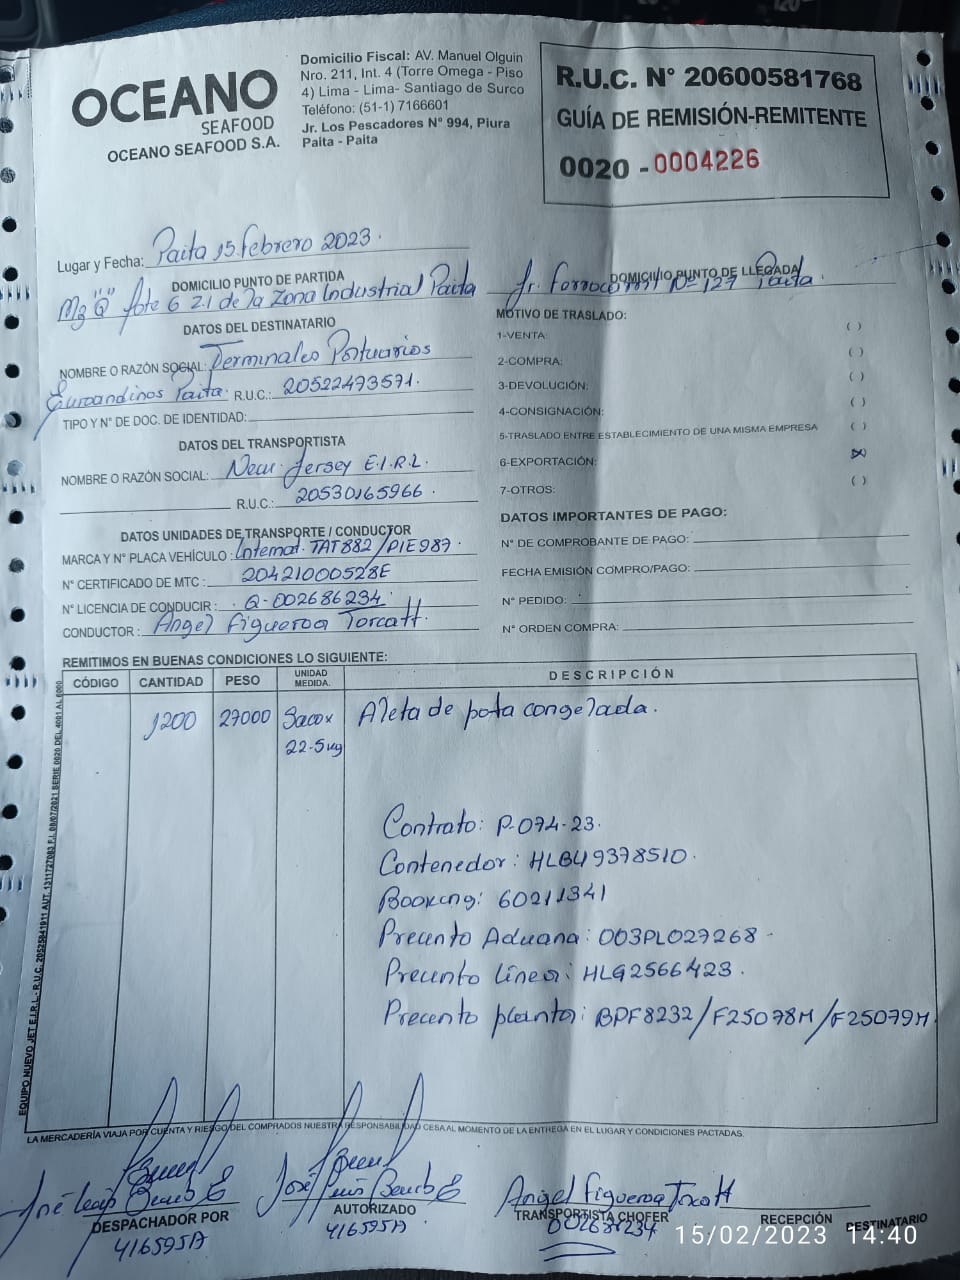 OCEANO
SEAFOOD
OCEANO SEAFOOD S.A.
Domicilio Fiscal: AV. Manuel Olguin
Nro. 211, Int. 4 (Torre Omega - Piso
4) Lima - Lima- Santiago de Surco
Teléfono: (51-1) 7166601
Jr. Los Pescadores N° 994, Piura
Paita - Paita
R.U.C. N° 20600581768
GUÍA DE REMISIÓN-REMITENTE
0020 - 0004226
Lugar y Fecha: Paita 15 febrero 2023.
DOMICILIO PUNTO DE PARTIDA
Mz "Q" lote 6 Z.I de la Zona Industrial Paita
DOMICILIO PUNTO DE LLEGADA
Jr. Ferrocarril N° 127 Paita.
DATOS DEL DESTINATARIO
NOMBRE O RAZÓN SOCIAL: Terminales Portuarios
Euroandinos Paita. R.U.C.: 20522473571.
TIPO Y N° DE DOC. DE IDENTIDAD:
DATOS DEL TRANSPORTISTA
NOMBRE O RAZÓN SOCIAL: New Jersey E.I.R.L.
R.U.C.: 20530165966.
DATOS UNIDADES DE TRANSPORTE / CONDUCTOR
MARCA Y N° PLACA VEHÍCULO: Internat. TAT882/PIE987.
N° CERTIFICADO DE MTC: 20421000528E
N° LICENCIA DE CONDUCIR: Q-002686234
CONDUCTOR: Angel Figueroa Torcatt.
MOTIVO DE TRASLADO:
1-VENTA: ( )
2-COMPRA: ( )
3-DEVOLUCIÓN: ( )
4-CONSIGNACIÓN: ( )
5-TRASLADO ENTRE ESTABLECIMIENTO DE UNA MISMA EMPRESA ( )
6-EXPORTACIÓN: (X)
7-OTROS: ( )
DATOS IMPORTANTES DE PAGO:
N° DE COMPROBANTE DE PAGO:
FECHA EMISIÓN COMPRO/PAGO:
N° PEDIDO:
N° ORDEN COMPRA:
REMITIMOS EN BUENAS CONDICIONES LO SIGUIENTE:
CÓDIGO CANTIDAD PESO UNIDAD MEDIDA. DESCRIPCIÓN
1200 27000 Sacox Aleta de pota congelada.
22.5kg
Contrato: P-074-23.
Contenedor: HLBU9378510.
Booking: 60211341
Precinto Aduana: 003PL027268-
Precinto linea: HLG2566423.
Precinto planta: BPF8232/F25078M/F25079M.
EQUIPO NUEVO JET E.I.R.L - R.U.C. 20525841911 AUT. 1311727083 F.I. 08/07/2021 SERIE 0020 DEL 4001 AL 6000
LA MERCADERÍA VIAJA POR CUENTA Y RIESGO DEL COMPRADOS NUESTRA RESPONSABILIDAD CESA AL MOMENTO DE LA ENTREGA EN EL LUGAR Y CONDICIONES PACTADAS.
DESPACHADOR POR
416595A
José Luis
AUTORIZADO
416595A
Angel Figueroa Torcatt
TRANSPORTISTA CHOFER
002686234
RECEPCIÓN DESTINATARIO
15/02/2023 14:40